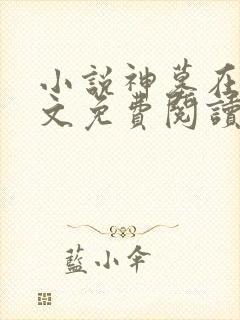 小說神墓在
文免費閱讀
藍小傘